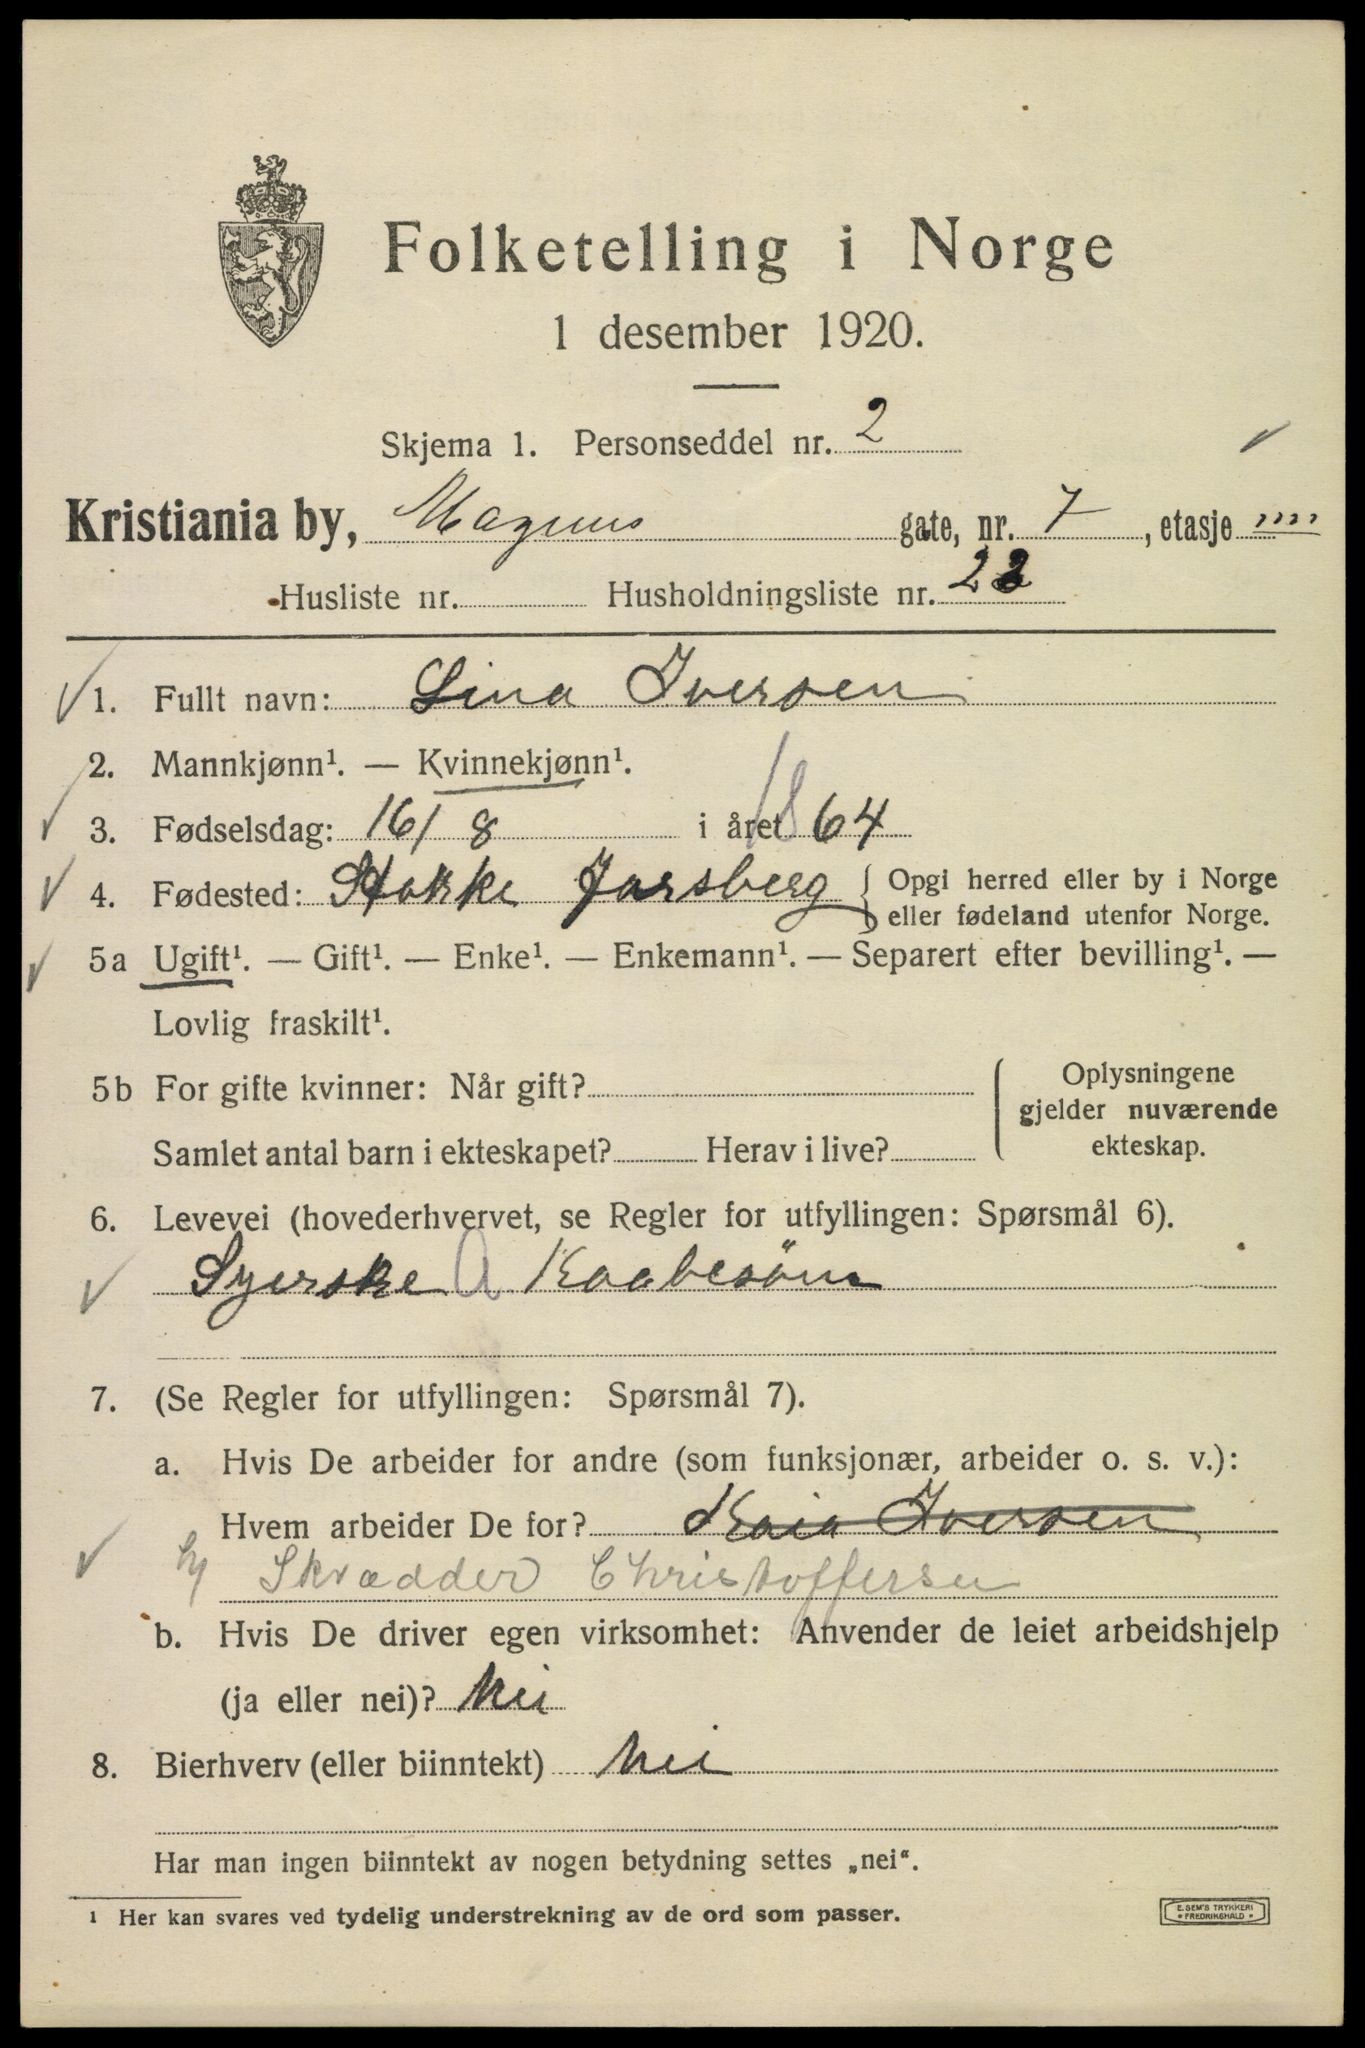 Folketelling i Norge
1 desember 1920.
Skjema 1. Personseddel nr. 2
Kristiania by, Magnus gate, nr. 7, etasje
Husliste nr. Husholdningsliste nr.
1. Fullt navn: Lina Iversen
2. Mannkjønn¹. — Kvinnekjønn¹.
3. Fødselsdag: 16/8 i året 1864
4. Fødested: Stokke Jarsberg { Opgi herred eller by i Norge
eller fødeland utenfor Norge.
5a Ugift¹. — Gift¹. — Enke¹. — Enkemann¹. — Separert efter bevilling¹. —
Lovlig fraskilt¹.
5b For gifte kvinner: Når gift?
Samlet antal barn i ekteskapet? Herav i live?
Oplysningene
gjelder nuværende
ekteskap.
6. Levevei (hovederhvervet, se Regler for utfyllingen: Spørsmål 6).
Syerske A Kaabesöm
7. (Se Regler for utfyllingen: Spørsmål 7).
a. Hvis De arbeider for andre (som funksjonær, arbeider o. s. v.):
Hvem arbeider De for? Kaia Iversen
Skrædder Christoffersen
b. Hvis De driver egen virksomhet: Anvender de leiet arbeidshjelp
(ja eller nei)? Nei
8. Bierhverv (eller biinntekt) Nei
Har man ingen biinntekt av nogen betydning settes „nei“.
1 Her kan svares ved tydelig understrekning av de ord som passer.
E. SEM'S TRYKKERI
* FREDRIKSHALD *